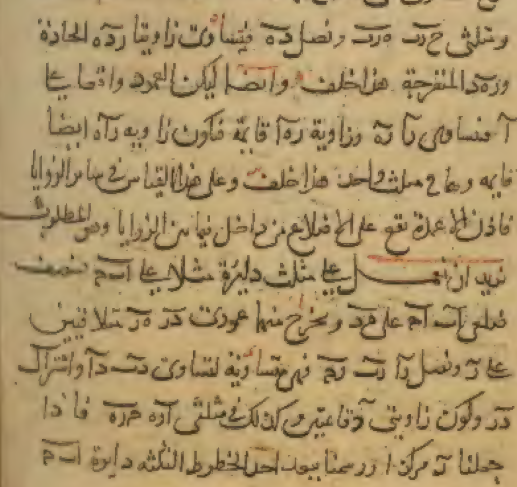 ومثلثى ح ر ب ه ر ب ونصل د ه فيتساوى زاويتا ر د ه الحادة
و ر ه د المنفرجة هذا خلف وايضا ليكن العمود واقعا على
آ فيتساوى ر آ ر ه وزاوية ر ه آ قائمة فتكون زاوية ر آ ه ايضا
قائمة وهما فى مثلث واحد هذا خلف وعلى هذا القياس فى سائر الزوايا
فاذن الاعمدة تقع على الاضلاع من داخل فيما بين الزوايا وهى المطلوبة
نريد ان نعمل على مثلث دائرة مثلا على ا ب ح فننصف
ضلعى ا ب ا ح على ه د ونخرج منهما عمودى د ر ه ر متلاقيين
على ر ونصل ر آ ر ب ر ح فهى متساوية لتساوى د ب د آ واشتراك
د ر وكون زاويتى د قائمتين وكذلك فى مثلثى آ ر ه ح ر ه فاذا
جعلنا ر مركزا ورسمنا ببعد احد الخطوط الثلثة دايرة ا ب ح